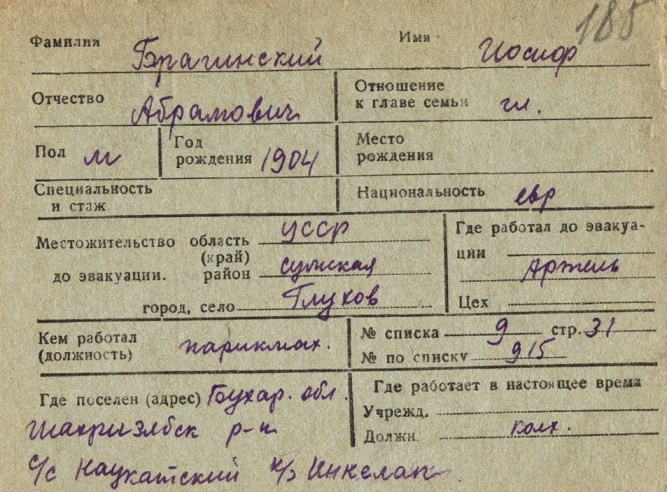 185
Фамилия Брагинский Имя Иосиф
Отчество Абрамович Отношение к главе семьи гл.
Пол м Год рождения 1904 Место рождения
Специальность и стаж Национальность евр
Местожительство до эвакуации. область (край) УССР
район сумская
город, село Глухов
Где работал до эвакуации Артель
Цех
Кем работал (должность) парикмах.
№ списка 9 стр. 31
№ по списку 915
Где поселен (адрес) Бухар. обл.
Шахризябск р-н
с/с Наукатский к/з Инкелап
Где работает в настоящее время
Учрежд.
Должн. колх.